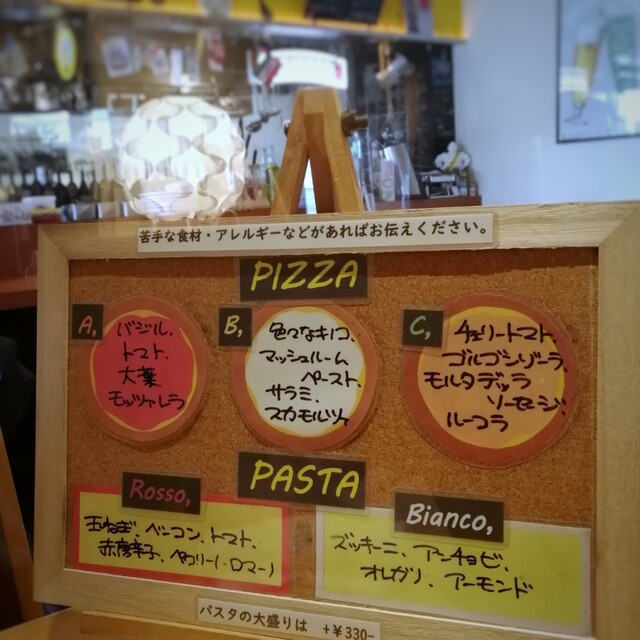 苦手な食材・アレルギーなどがあればお伝えください。
PIZZA
A,
バジル、
トマト、
大葉、
モッツァレラ
B,
色々なキノコ、
マッシュルーム
ペースト、
サラミ、
スカモルツァ
C,
チェリートマト
ゴルゴンゾーラ、
モルタデッラ
ソーセージ、
ルーコラ
PASTA
Rosso,
玉ねぎ、ベーコン、トマト、
赤唐辛子、ペコリーノ・ロマーノ
Bianco,
ズッキーニ、アンチョビ、
オレガノ、アーモンド
パスタの大盛りは +¥330-